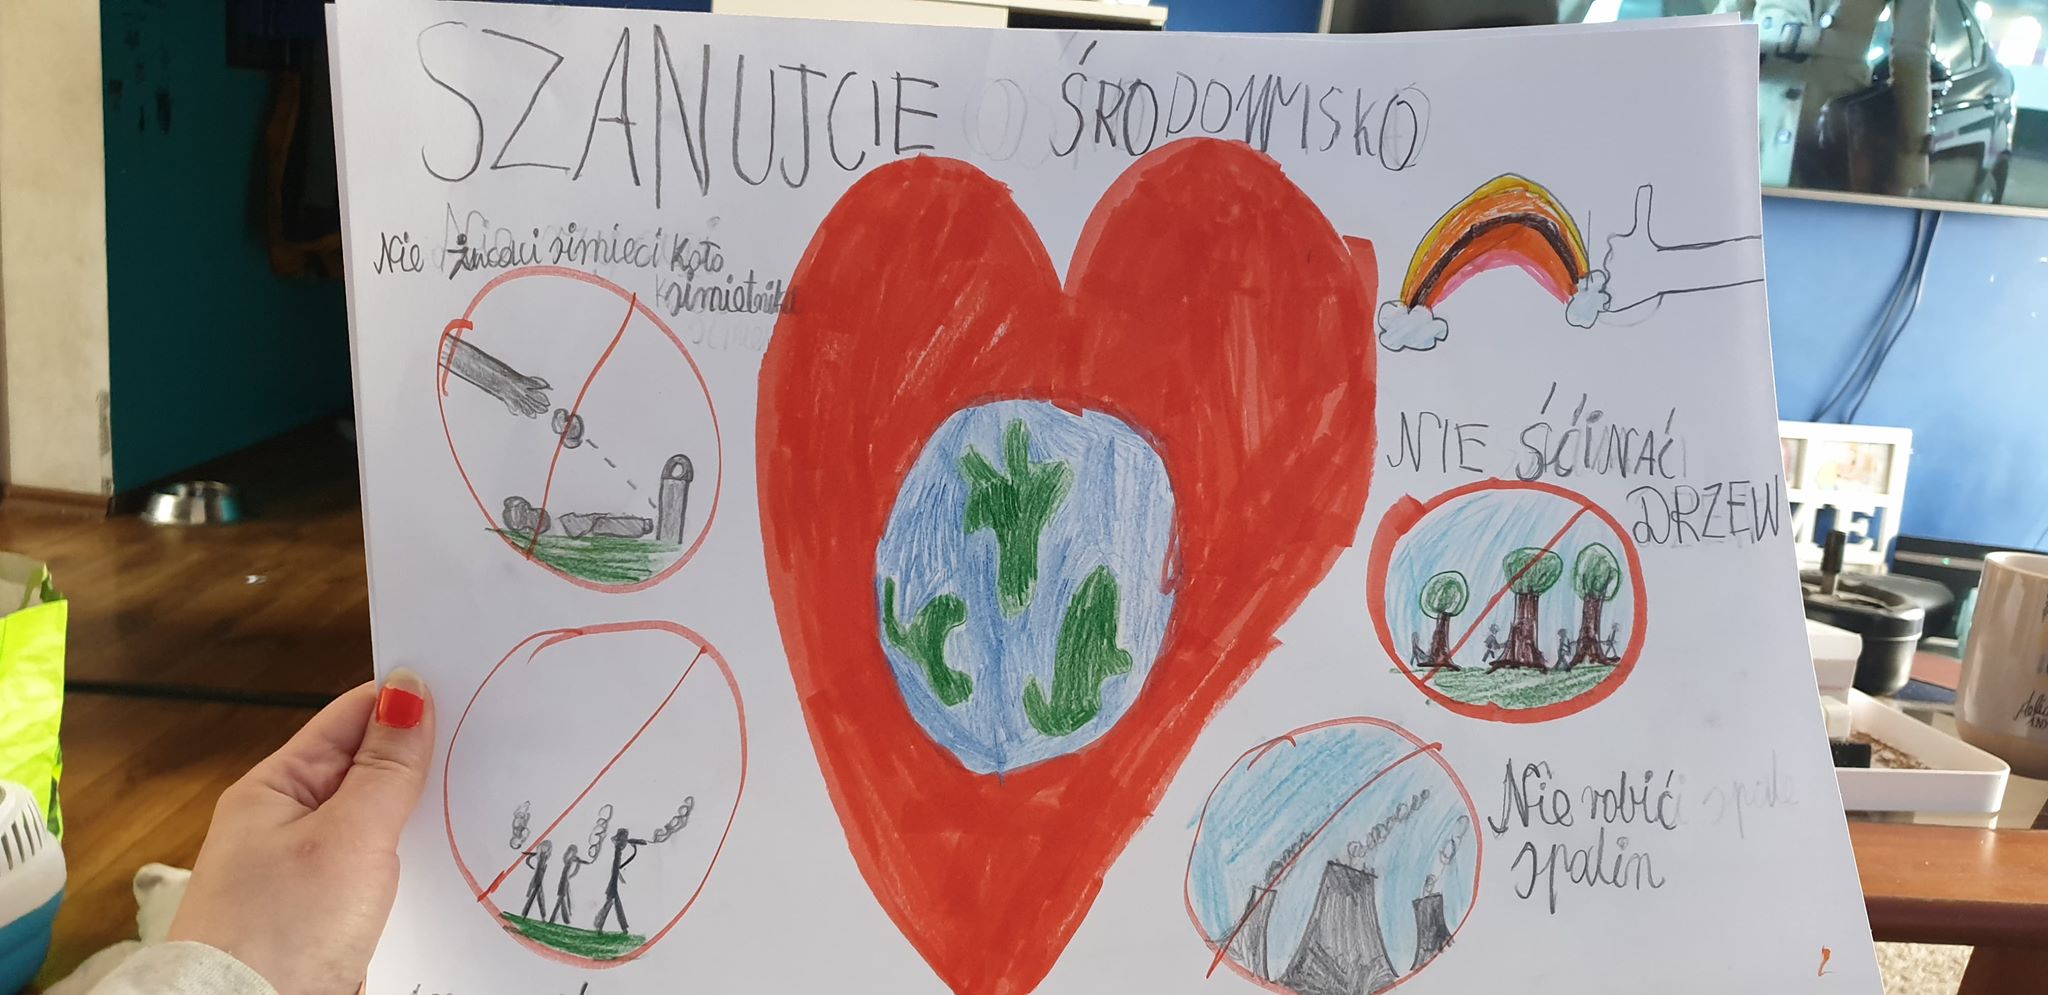 SZANUJCIE ŚRODOWISKO
Nie żucaci simieci koło
simietnika
NIE ŚĆINAĆ
DRZEW
Nie robić
spalin